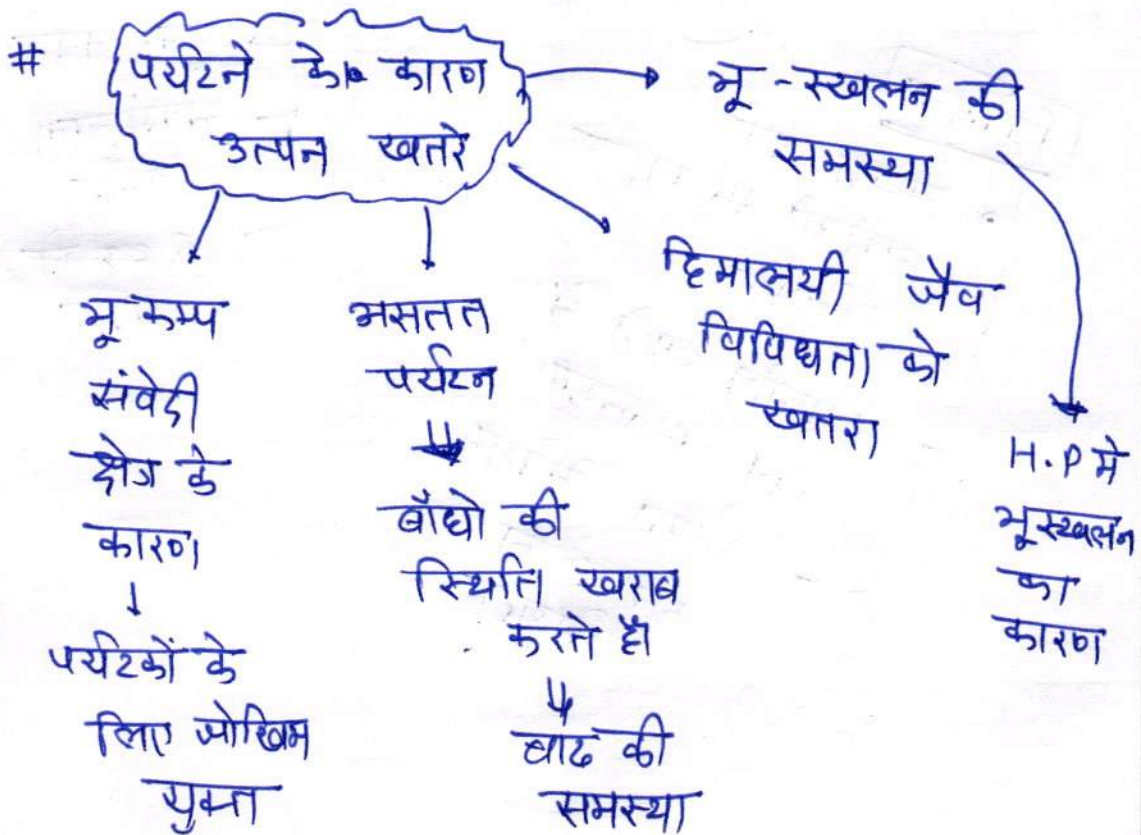 # पर्यटने के कारण
उत्पन खतरे
भू-स्खलन की
समस्या
H.P मे
भूस्खलन
का
कारण
हिमालयी जैव
विविधता को
खतरा
भूकम्प
संवेदी
क्षेत्र के
कारण
पर्यटकों के
लिए जोखिम
युक्त
असतत
पर्यटन
बाँधो की
स्थिति खराब
करते है।
बाढ की
समस्या